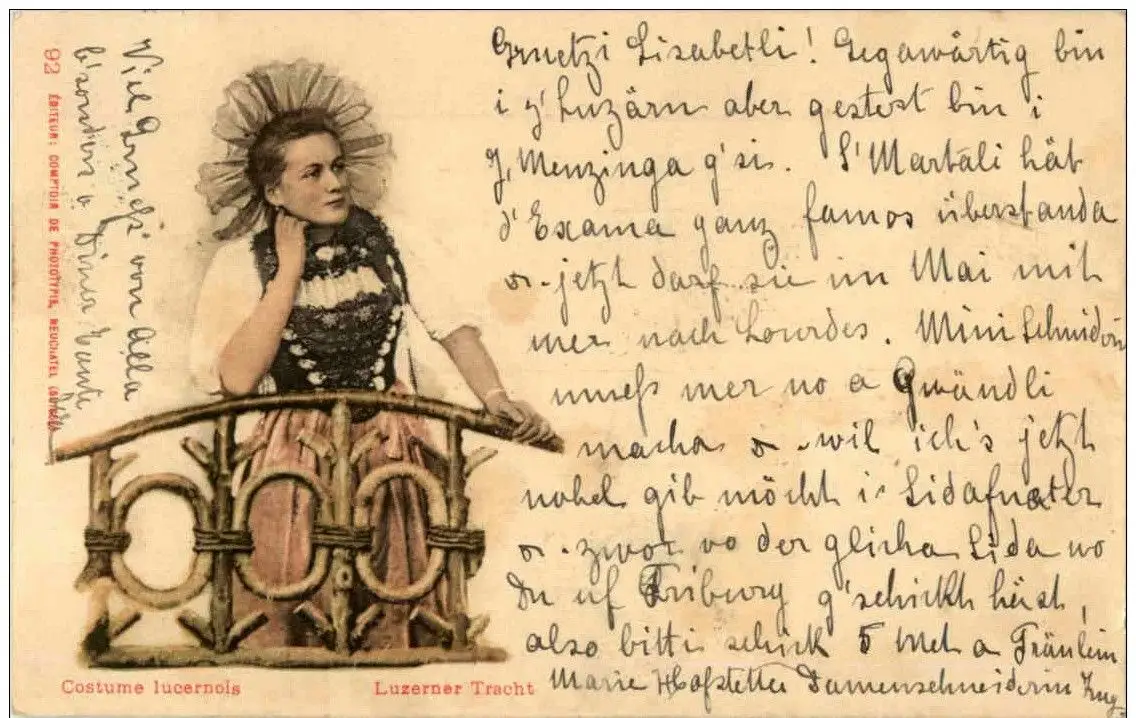 Gruetzi Lisabetli! Gegawärtig bin
i z'Luzärn aber gestert bin i
z'Menzinga g'si. S'Martäli hät
d'Exama ganz famos überstanda
u. jetzt darf sie im Mai mit
mer nach Lourdes. Mini Schnidern
muess mer no a Gwändli
macha u. wil ich's jetzt
nobel gib möcht i Sidafueter
u. zwor vo der glicha Sida wo
Du uf Friburg g'schickt häst,
also bitti schick 5 Met a Fräulein
Marie Hofstetter Damenschneiderin Zug.
Viel Grüess' von Alla
b'sonders v. Dina Tante
92 ÉDITEUR: COMPTOIR DE PHOTOTYPIE, NEUCHATEL
Costume lucernois
Luzerner Tracht